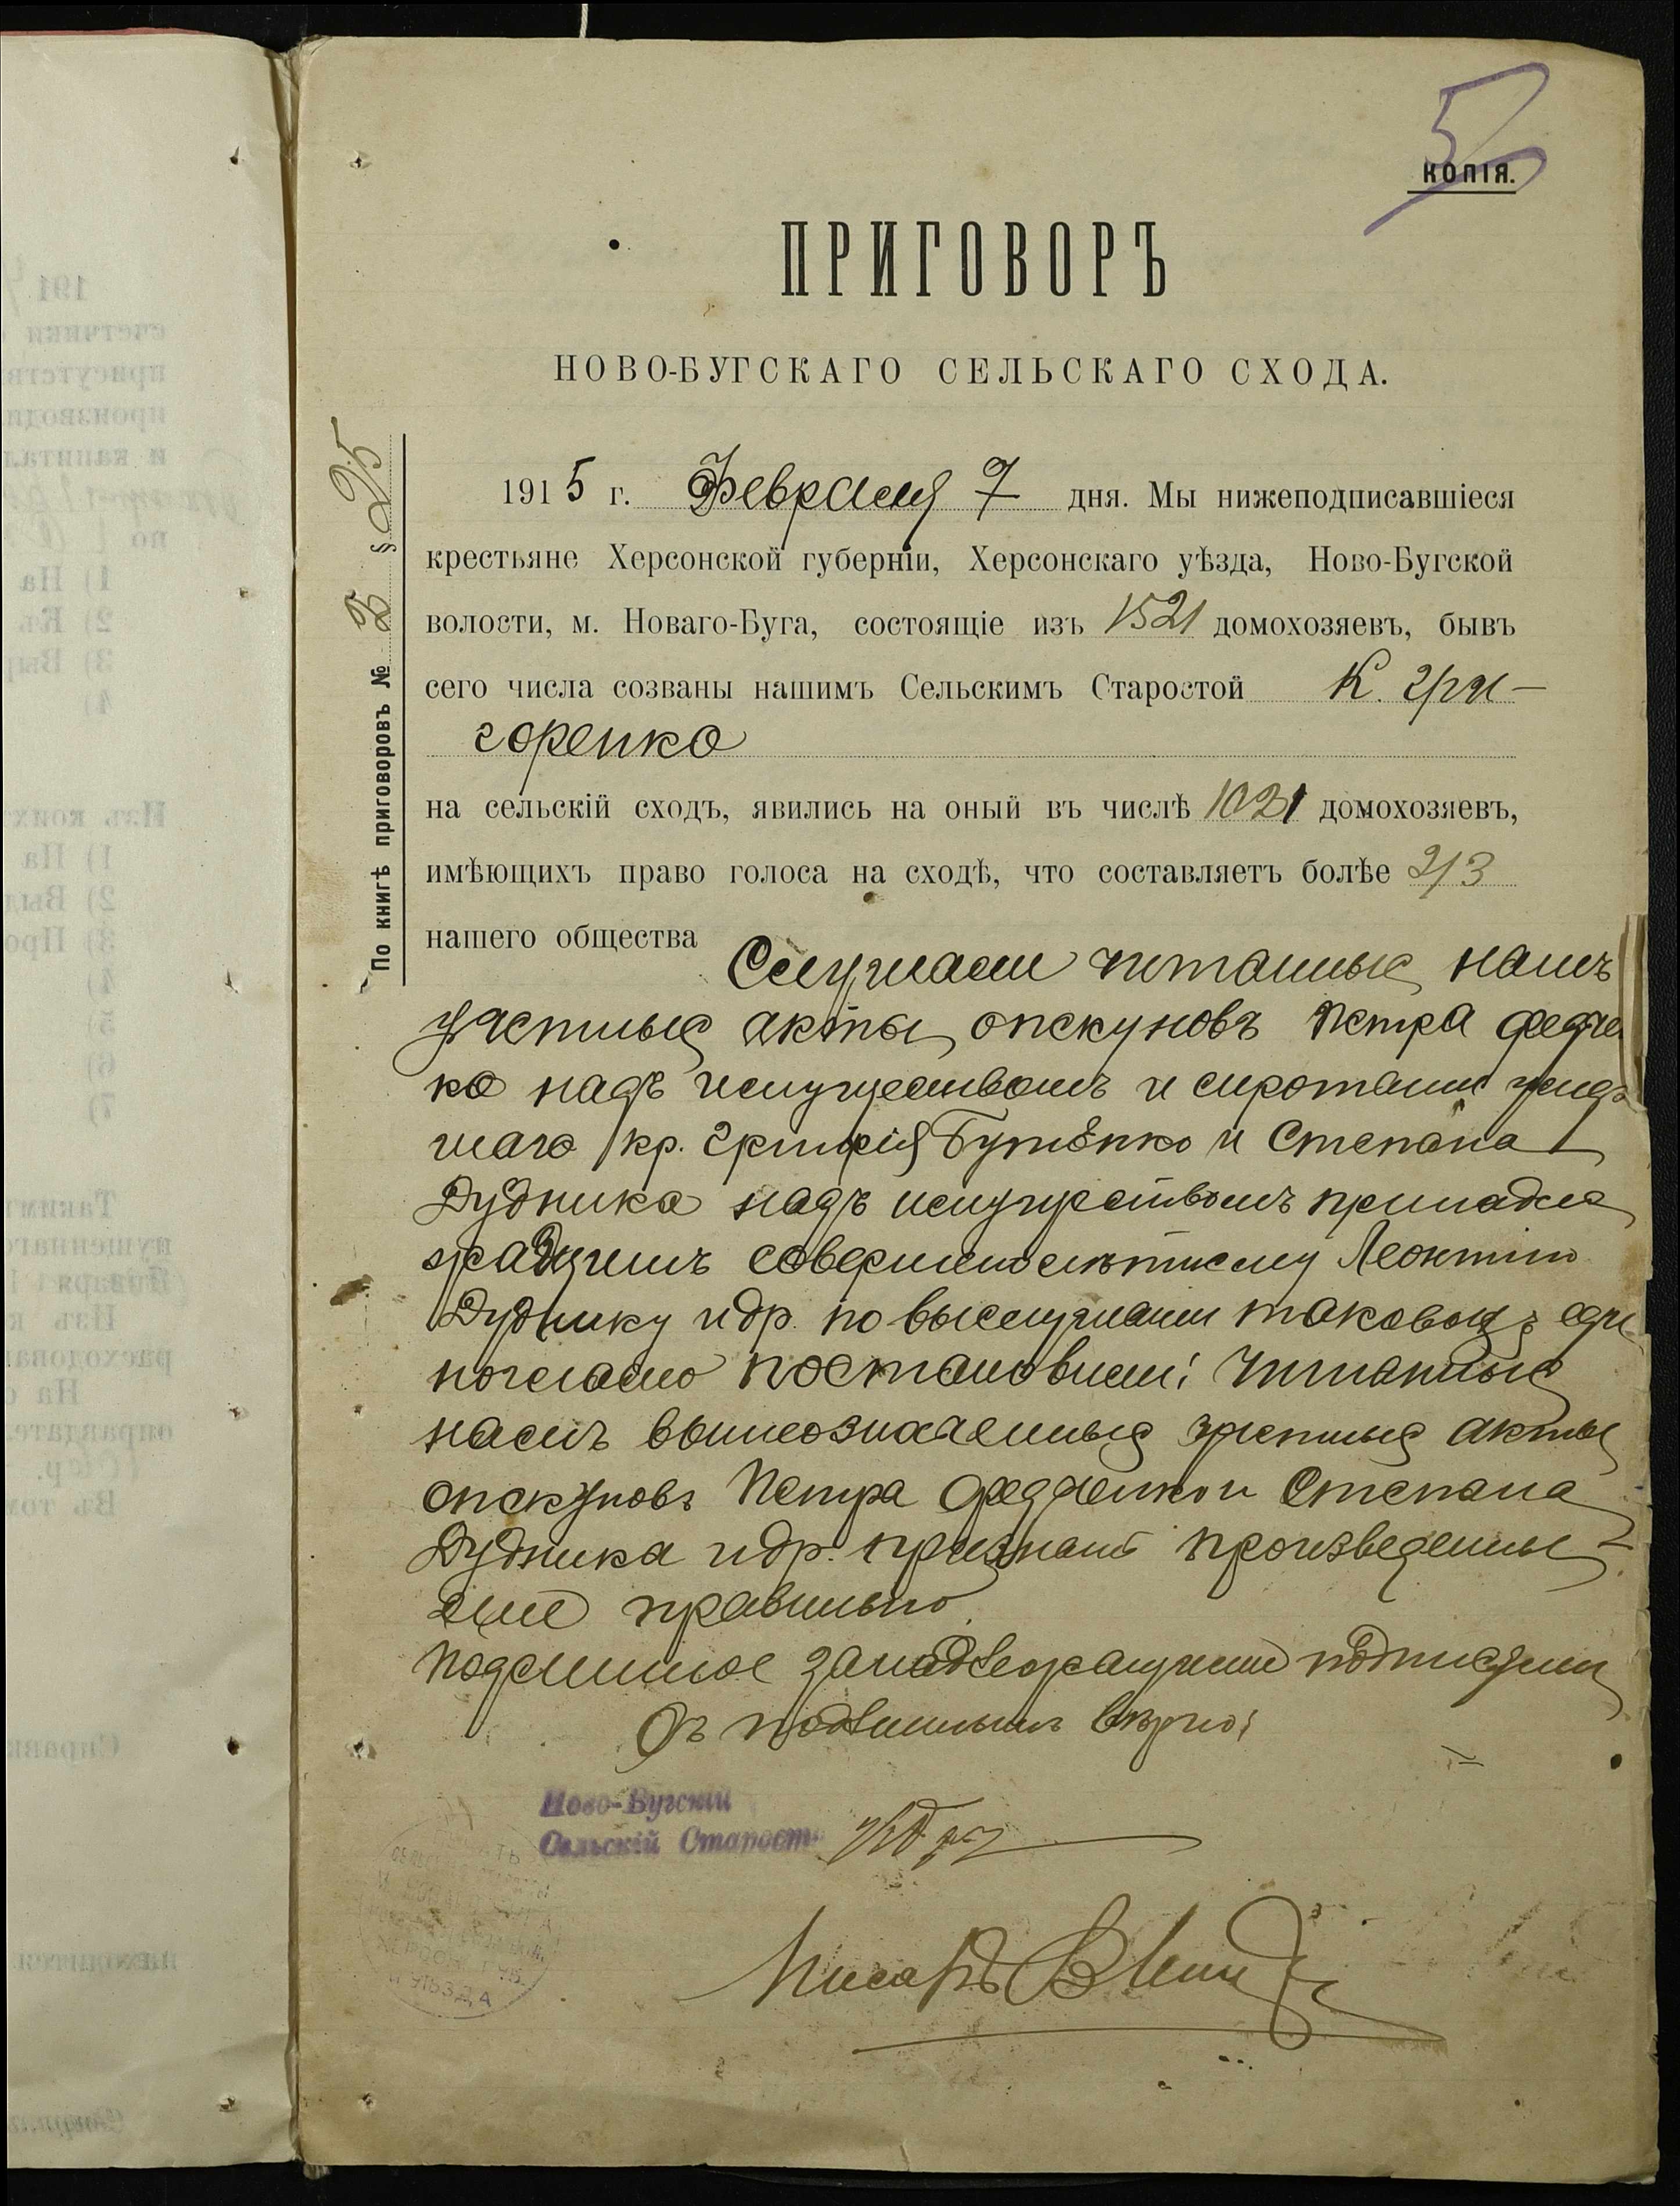 5
КОПІЯ.
ПРИГОВОРЪ
НОВО-БУГСКАГО СЕЛЬСКАГО СХОДА.
По книгѣ приговоровъ № 2 § 25
1915 г. Февраля 7 дня. Мы нижеподписавшіеся
крестьяне Херсонской губерніи, Херсонскаго уѣзда, Ново-Бугской
волости, м. Новаго-Буга, состоящіе изъ 1521 домохозяевъ, бывъ
сего числа созваны нашимъ Сельскимъ Старостой К. Гри-
горенко
на сельскій сходъ, явились на оный въ числѣ 1021 домохозяевъ,
имѣющихъ право голоса на сходѣ, что составляетъ болѣе 2/3
нашего общества Слушали читанные намъ
учетные акты опекуновъ Петра Федче
ко надъ имуществомъ и сиротами умер
шаго кр. Бутенко и Степана
Дудника надъ имуществомъ принадле
жащимъ совершеннолѣтнему Леонтію
Дуднику и др. по выслушаніи таковыхъ еди
ногласно постановили: Читанные
намъ вышеозначенные учетные акты
опекуновъ Петра Федченко и Степана
Дудника и др. признать произведенны
ми правильно
Подлинное за надлежащими подписями
Съ подлиннымъ вѣрно:
Ново-Бугскій
Сельскій Староста
Писарь
УѢЗДА